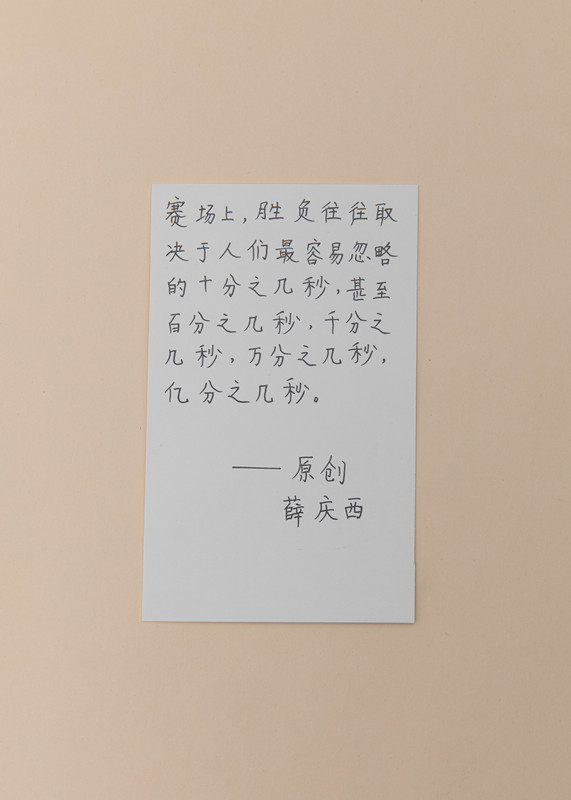 赛场上,胜负往往取
决于人们最容易忽略
的十分之几秒,甚至
百分之几秒,千分之
几秒,万分之几秒,
亿分之几秒。
——原创
薛庆西